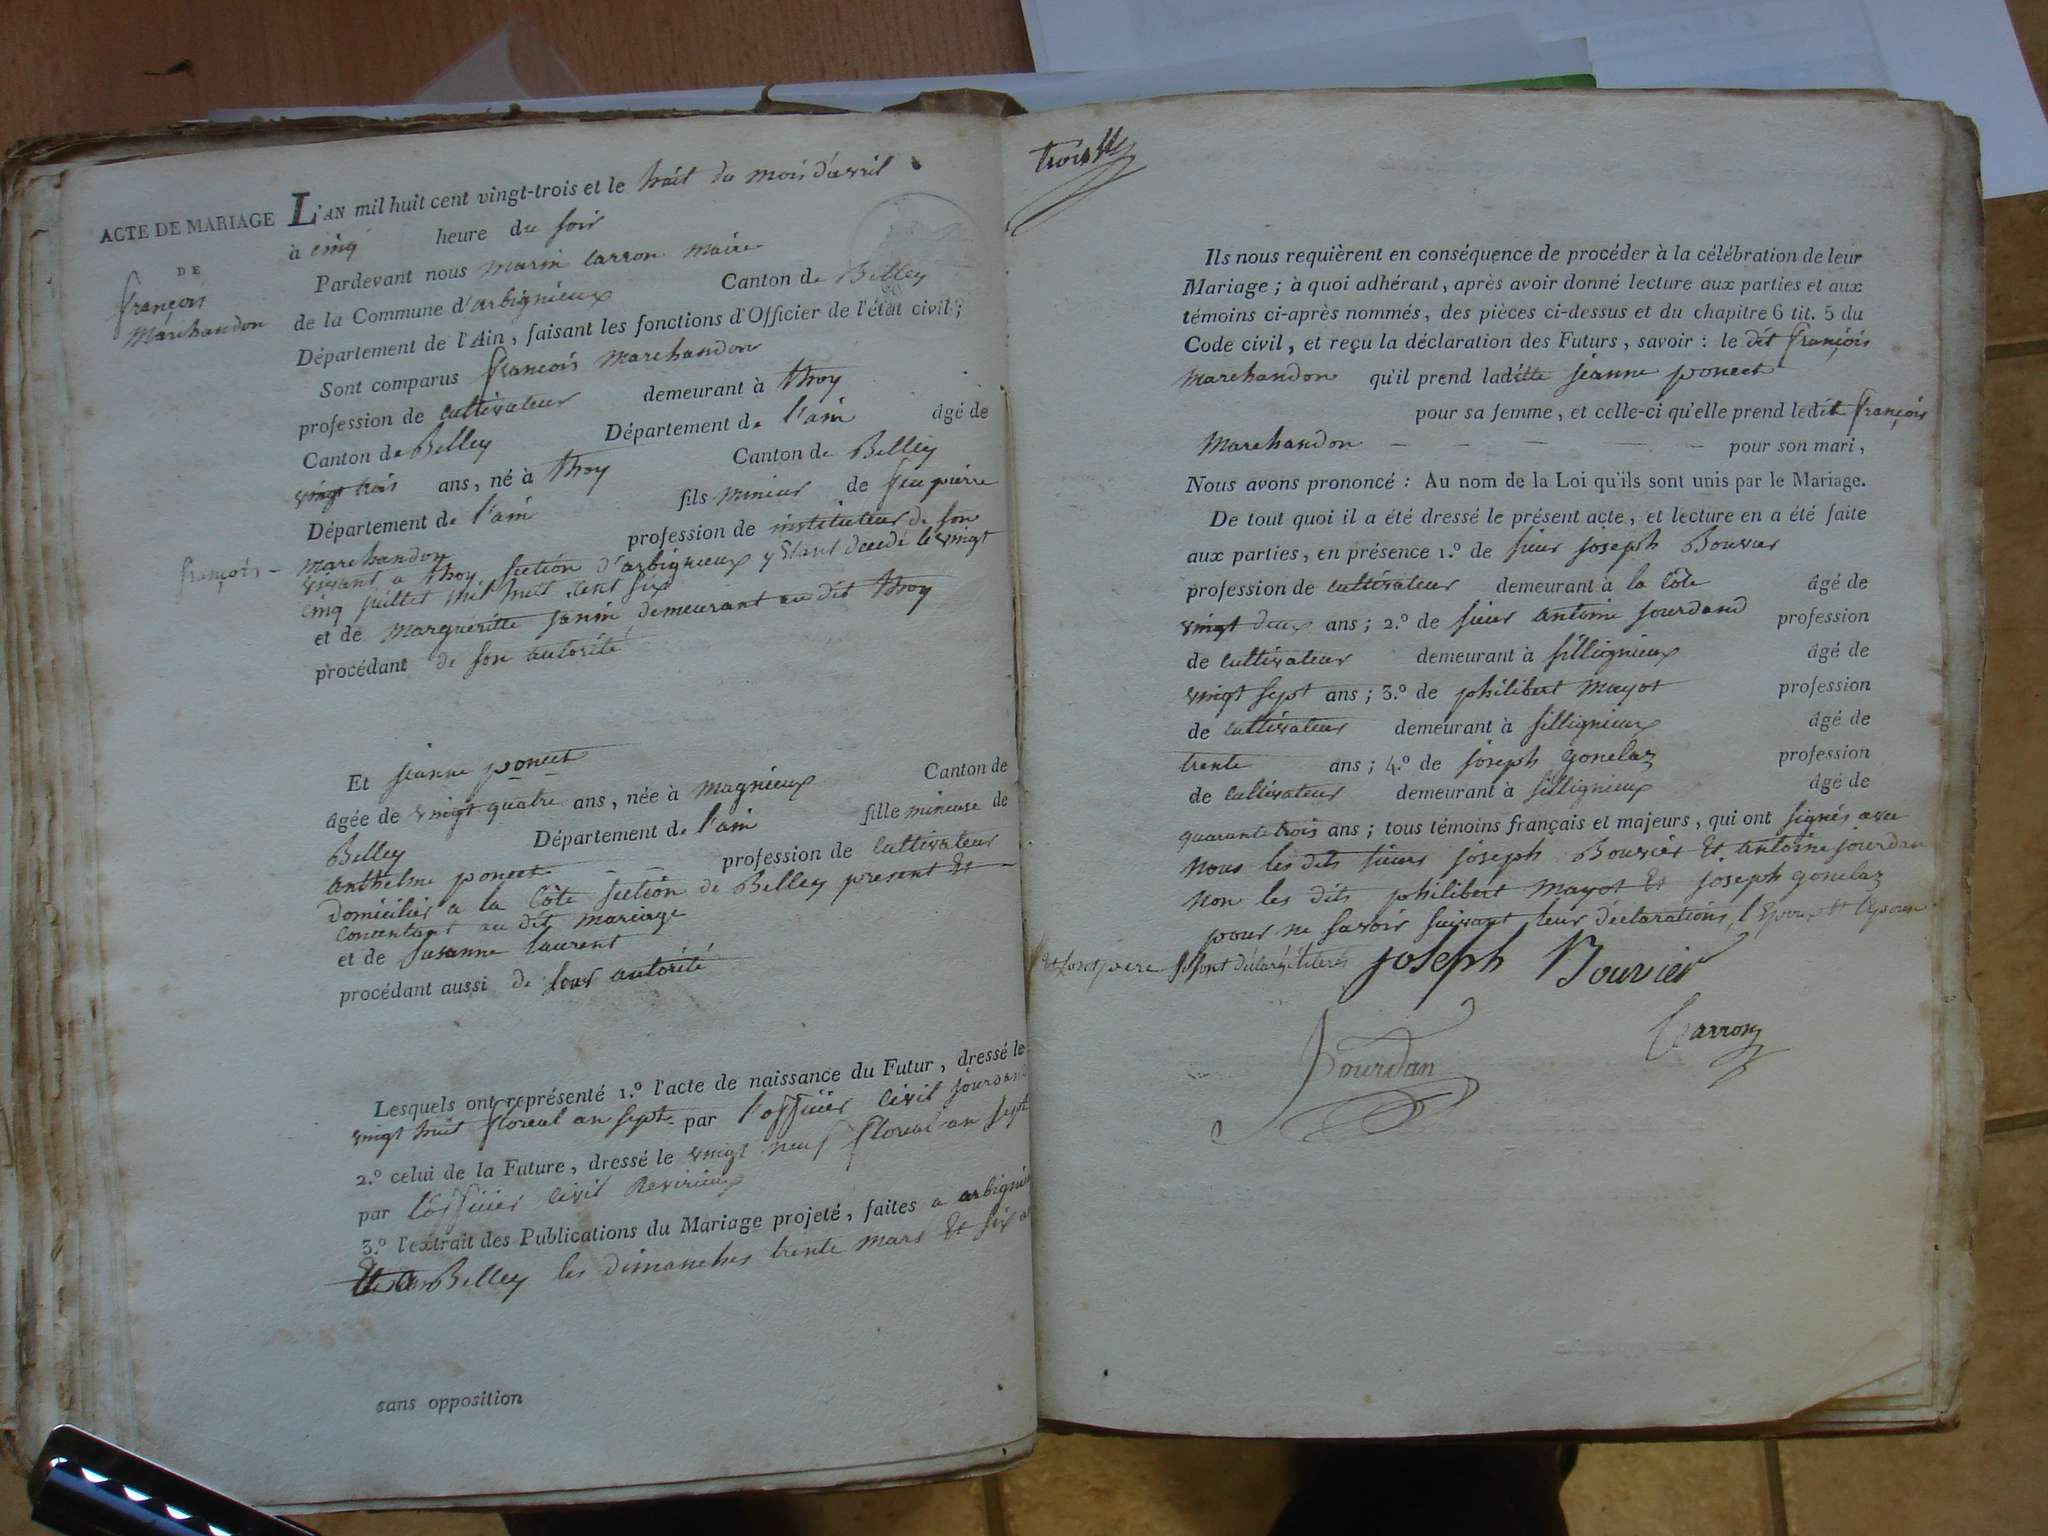 ACTE DE MARIAGE
DE
françois
Marchandon
L'AN mil huit cent vingt-trois et le huit du mois d'avril
à cinq heure du soir
Pardevant nous marin carron maire
de la Commune d'arbignieux Canton de Belley
Département de l'Ain, faisant les fonctions d'Officier de l'état civil;
Sont comparus françois marchandon
profession de cultivateur demeurant à thoy
Canton de Belley Département de l'ain âgé de
vingt trois ans, né à thoy Canton de Belley
Département de l'ain fils mineur de feu pierre
françois - marchandon profession de instituteur de son
vivant a thoy section d'arbignieux y Etant decedé le vingt
cinq juillet mil huit cent six
et de margueritte janin demeurant au dit thoy
procédant de son autorité
Et jeanne poncet
âgée de vingt quatre ans, née à magnieux Canton de
Belley Département de l'ain fille mineuse de
anthelme poncet profession de cultivateur
domicilier a la Côte section de Belley present Et
concentant au dit mariage
et de susanne laurent
procédant aussi de leur autorité
Lesquels ont représenté 1.º l'acte de naissance du Futur, dressé le
vingt huit floreal an sept par l'officier civil jourdand
2.º celui de la Future, dressé le vingt neuf floreal an sept
par l'officier civil Revirieux
3.º l'extrait des Publications du Mariage projeté, faites a arbignieu
Belley les dimanches trente mars Et six
sans opposition
Ils nous requièrent en conséquence de procéder à la célébration de leur
Mariage; à quoi adhérant, après avoir donné lecture aux parties et aux
témoins ci-après nommés, des pièces ci-dessus et du chapitre 6 tit. 5 du
Code civil, et reçu la déclaration des Futurs, savoir: le dit françois
marchandon qu'il prend ladite jeanne poncet
pour sa femme, et celle-ci qu'elle prend ledit françois
marchandon - - - - - pour son mari,
Nous avons prononcé: Au nom de la Loi qu'ils sont unis par le Mariage.
De tout quoi il a été dressé le présent acte, et lecture en a été faite
aux parties, en présence 1.º de sieur joseph Bouvier
profession de cultivateur demeurant à la Côte âgé de
vingt deux ans; 2.º de sieur antoine jourdand profession
de cultivateur demeurant à sillignieux âgé de
vingt sept ans; 3.º de philibert mayot profession
de cultivateur demeurant à sillignieux âgé de
trente ans; 4.º de joseph gonelaz profession
de cultivateur demeurant à sillignieux âgé de
quarante trois ans; tous témoins français et majeurs, qui ont signés avec
nous les dits sieurs joseph Bouvier Et antoine jourdan
non les dits philibert mayot Et joseph gonelaz
pour ne savoir suivant leur déclarations, l'Epoux Et
joseph Bouvier
Carron
Jourdan